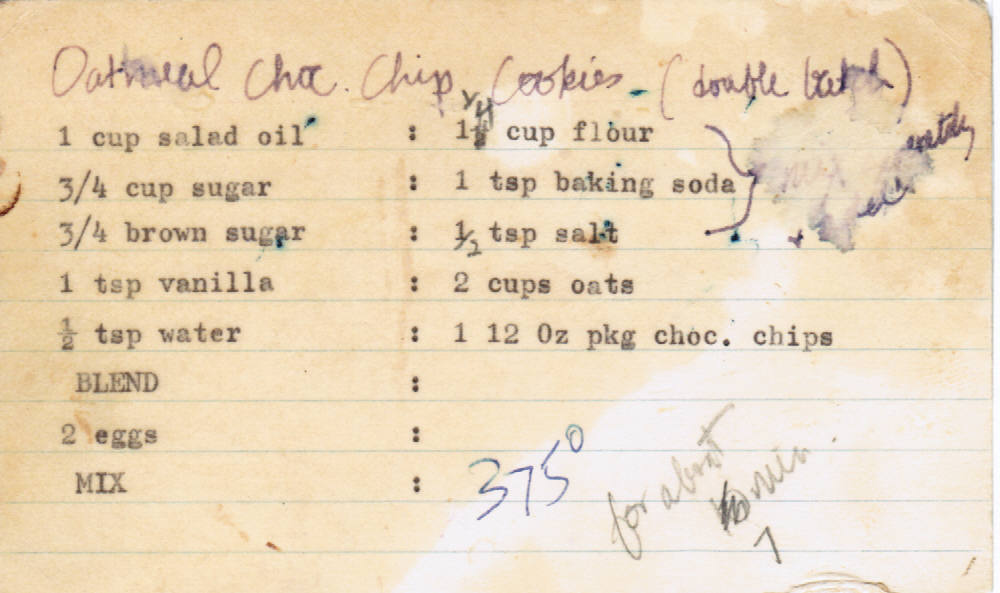 Oatmeal Choc. Chip Cookies (double batch)
1 cup salad oil : 1 1/4 cup flour
3/4 cup sugar : 1 tsp baking soda
3/4 brown sugar : 1/2 tsp salt
mix
1 tsp vanilla : 2 cups oats
½ tsp water : 1 12 Oz pkg choc. chips
BLEND :
2 eggs :
MIX :
375°
for about
10 min
7